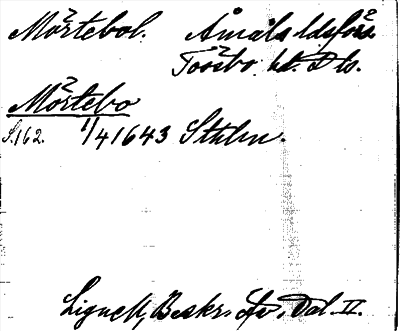 Mörtebol. Åmåls ldsförs.
Tössbo hd. D lo.
Mörtebo
S.162. 1/4 1643 Sthlm.
Lignell, Beskr. öfv. Dal. II.